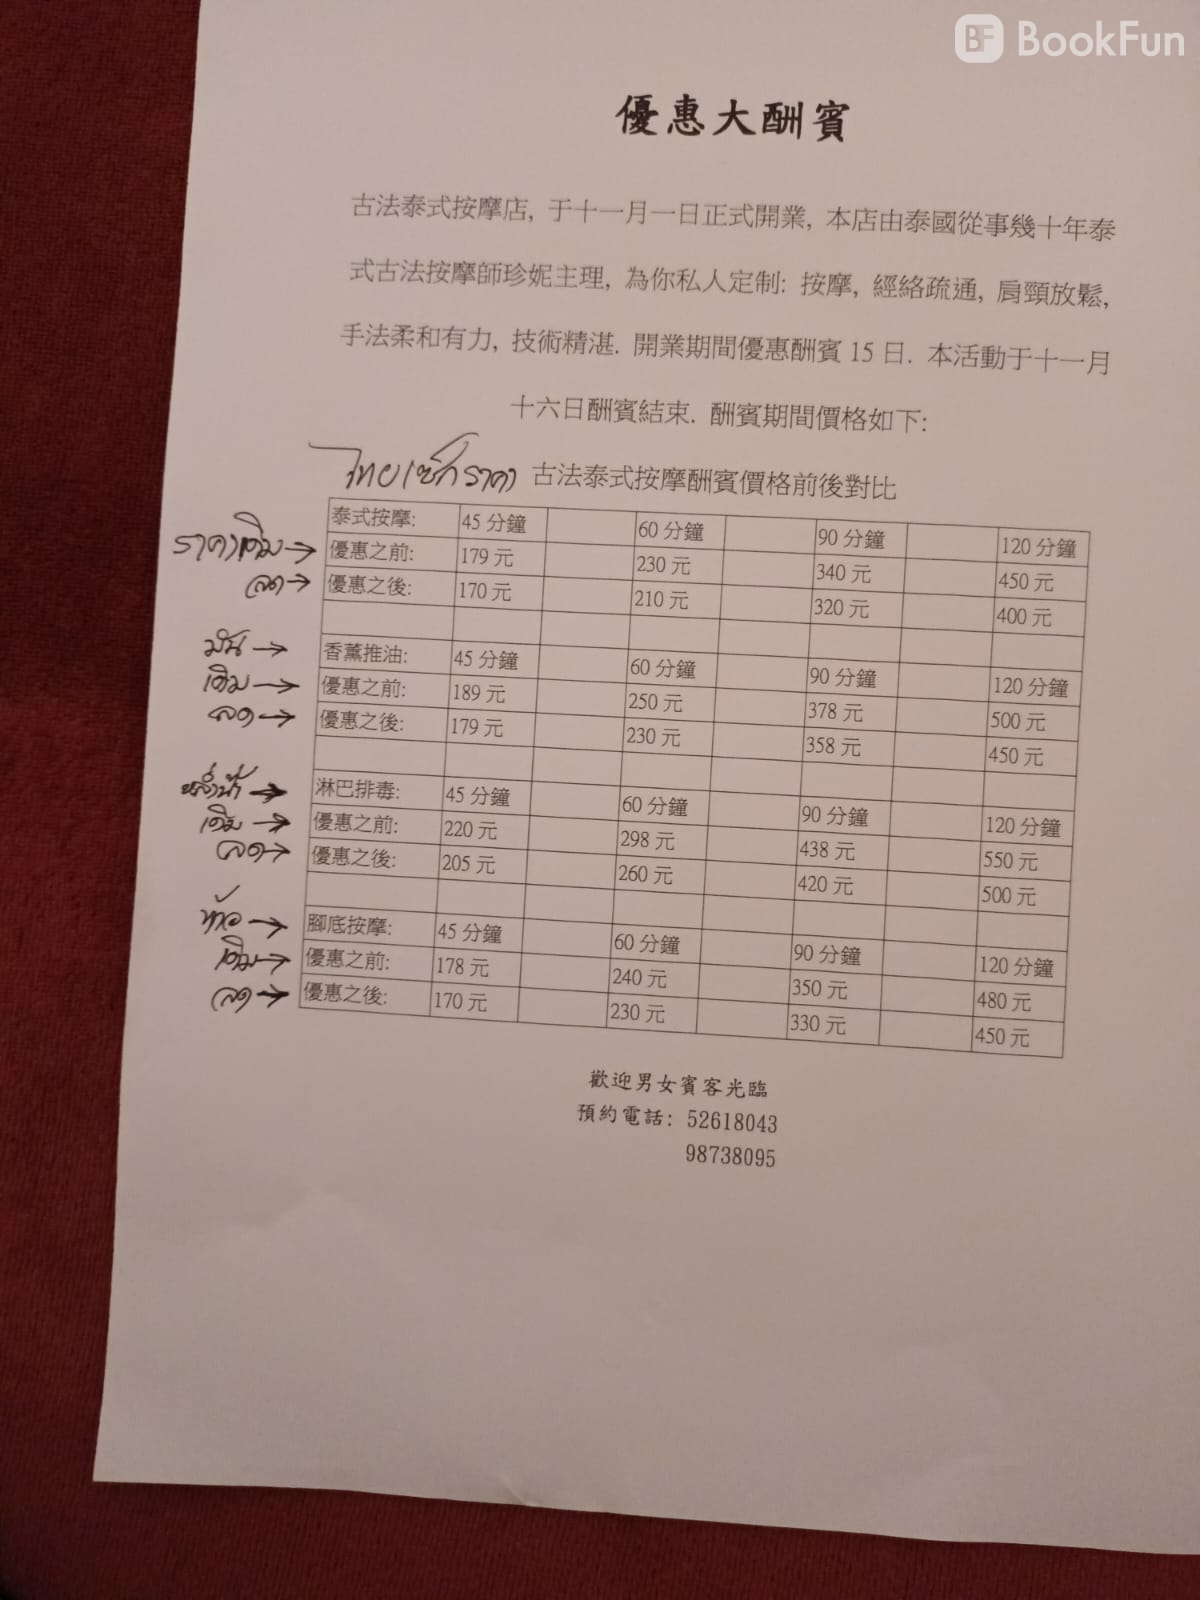 BF BookFun
優惠大酬賓
古法泰式按摩店, 于十一月一日正式開業, 本店由泰國從事幾十年泰
式古法按摩師珍妮主理, 為你私人定制: 按摩, 經絡疏通, 肩頸放鬆,
手法柔和有力, 技術精湛. 開業期間優惠酬賓 15 日. 本活動于十一月
十六日酬賓結束. 酬賓期間價格如下:
ราคา 古法泰式按摩酬賓價格前後對比
泰式按摩: 45 分鐘 60 分鐘 90 分鐘 120 分鐘
ราคาเดิม → 優惠之前: 179 元 230 元 340 元 450 元
ลด → 優惠之後: 170 元 210 元 320 元 400 元
→ 香薰推油: 45 分鐘 60 分鐘 90 分鐘 120 分鐘
เดิม → 優惠之前: 189 元 250 元 378 元 500 元
ลด → 優惠之後: 179 元 230 元 358 元 450 元
→ 淋巴排毒: 45 分鐘 60 分鐘 90 分鐘 120 分鐘
เดิม → 優惠之前: 220 元 298 元 438 元 550 元
ลด → 優惠之後: 205 元 260 元 420 元 500 元
→ 腳底按摩: 45 分鐘 60 分鐘 90 分鐘 120 分鐘
เดิม → 優惠之前: 178 元 240 元 350 元 480 元
ลด → 優惠之後: 170 元 230 元 330 元 450 元
歡迎男女賓客光臨
預約電話: 52618043
98738095